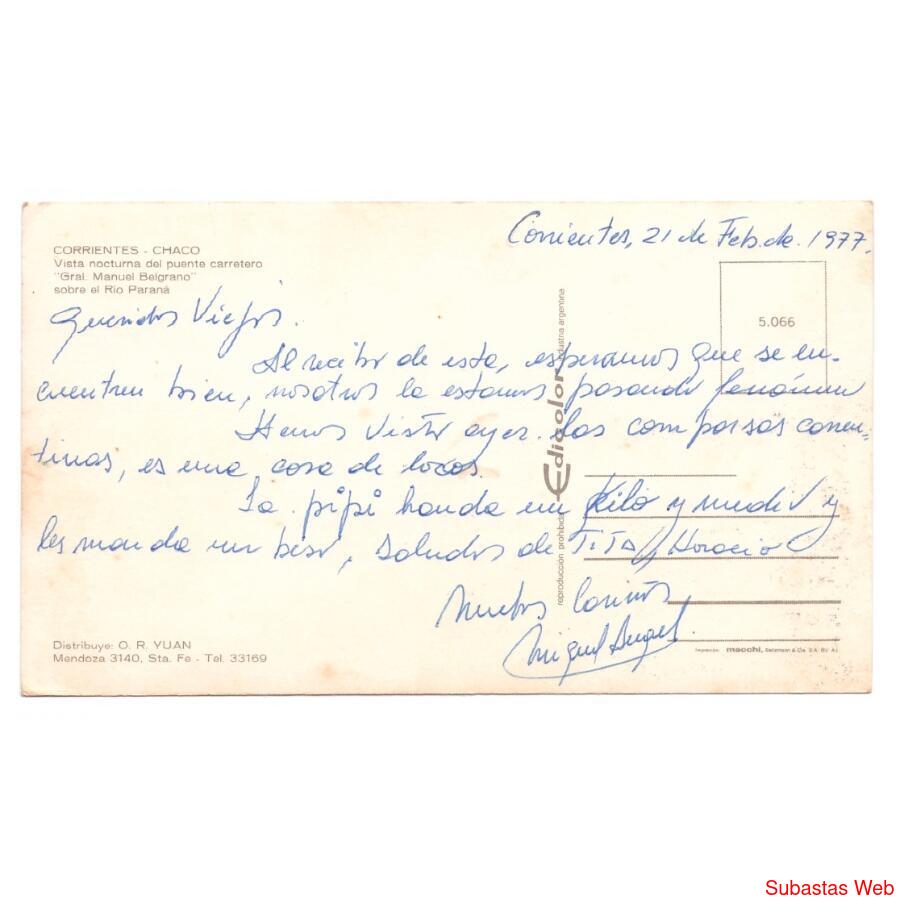 Corrientes, 21 de Feb. de 1977.
CORRIENTES - CHACO
Vista nocturna del puente carretero
"Gral. Manuel Belgrano"
sobre el Rio Paraná
5.066
Queridos Viejos.
Al recibir de esta, esperamos que se en-
cuentren bien, nosotros la estamos pasando
Hemos visto ayer las comparsas corren=
tinas, es una cosa de locos.
La pipi un Kilo y medio y
les manda un beso, saludos de Tita, Horacio
Muchos Cariños
Miguel Angel.
Edicolor industria argentina
reproducción prohibida
Distribuye: O. R. YUAN
Mendoza 3140, Sta. Fe - Tel. 33169
Impresión macchi,
Subastas Web